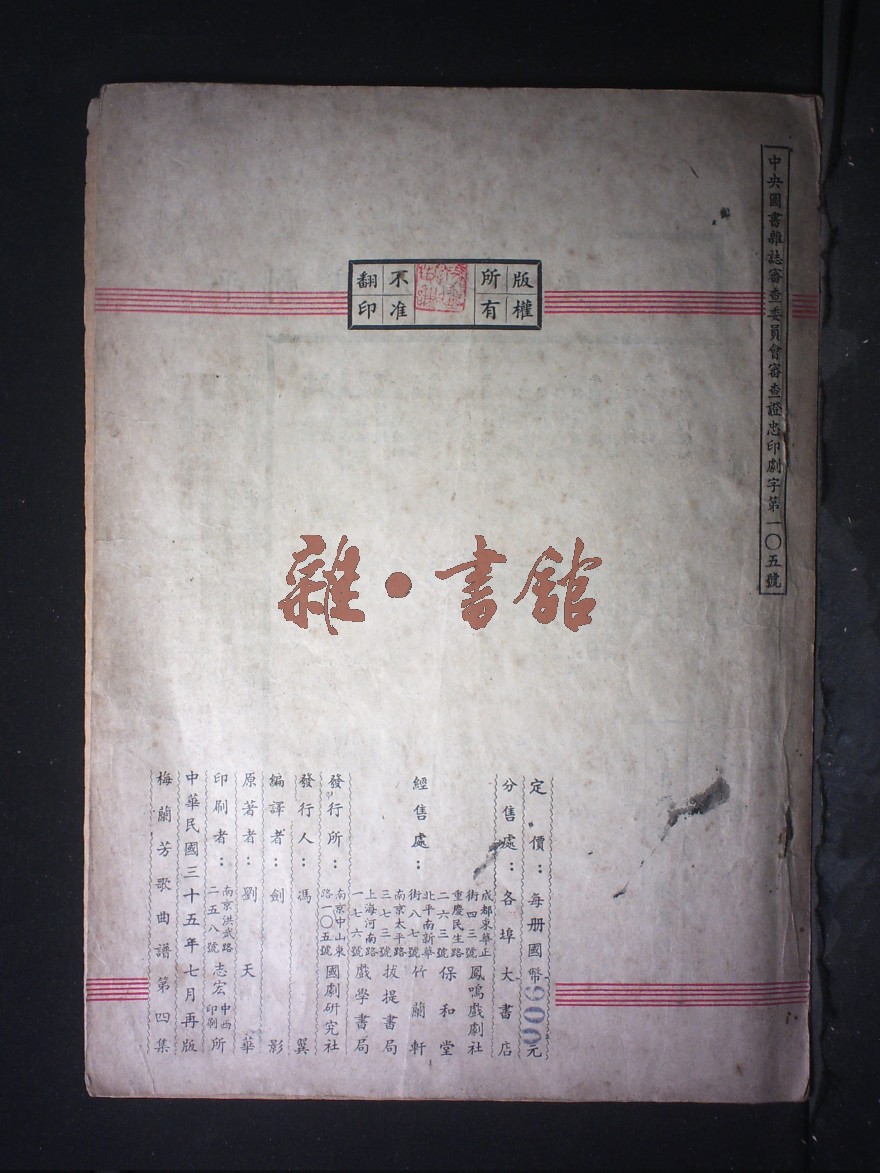 中央圖書雜誌審查委員會審查證忠印劇字第一〇五號
版權所有
不准翻印
雜•書館
定價：每册國幣900元
分售處：各埠大書店
經售處：
成都東華正街四三號鳳鳴戲劇社
重慶民生路二六三號保和堂
北平南新華街八七號竹蘭軒
南京太平路三七三號拔提書局
上海河南路一七六號戲學書局
發行所：南京中山東路一〇五號國劇研究社
發行人：馮翼
編譯者：劍影
原著者：劉天華
印刷者：南京洪武路二五八號志宏中西印刷所
中華民國三十五年七月再版
梅蘭芳歌曲譜第四集